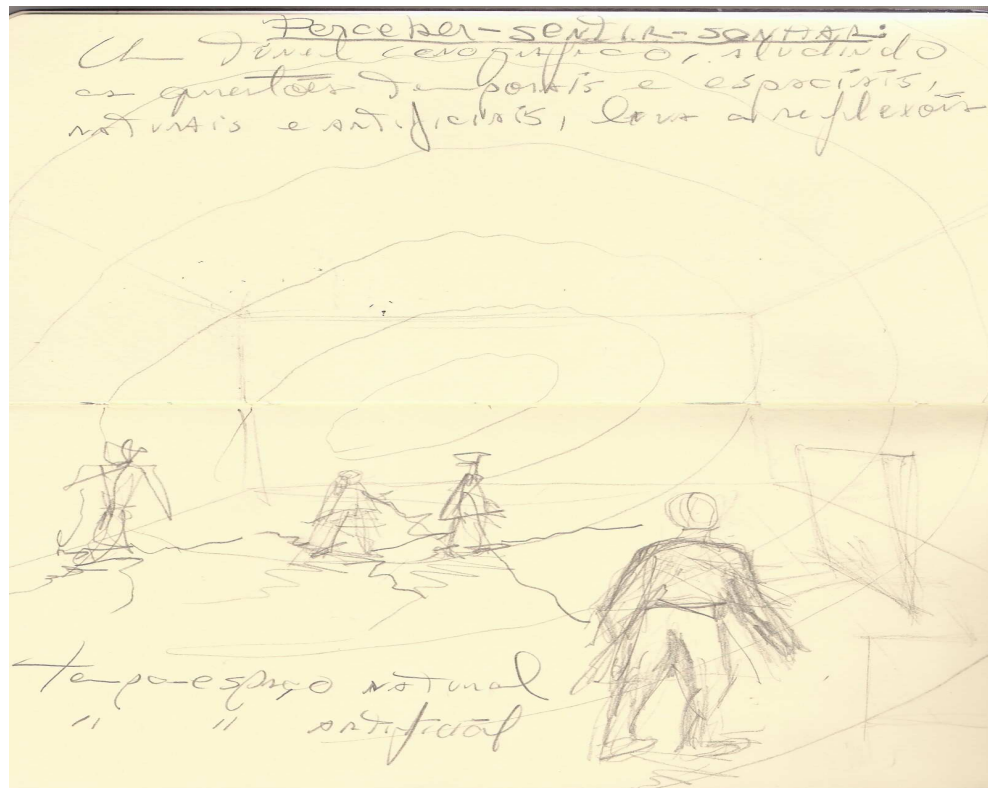 Perceber-SENTIR-SONHAR:
Um Túnel cenográfico, aludindo
as questões Temporais e espaciais,
naturais e artificiais, leva a reflexões
tempo-espaço natural
" " artificial